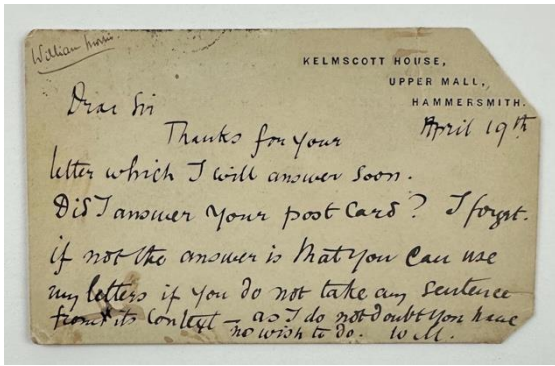 William Morris
KELMSCOTT HOUSE,
UPPER MALL,
HAMMERSMITH.
April 19th
Dear Sir
Thanks for your
letter which I will answer soon.
Did I answer your post card? I forget.
if not the answer is that you can use
my letters if you do not take any sentence
from its context — as I do not doubt you have
no wish to do. W M.